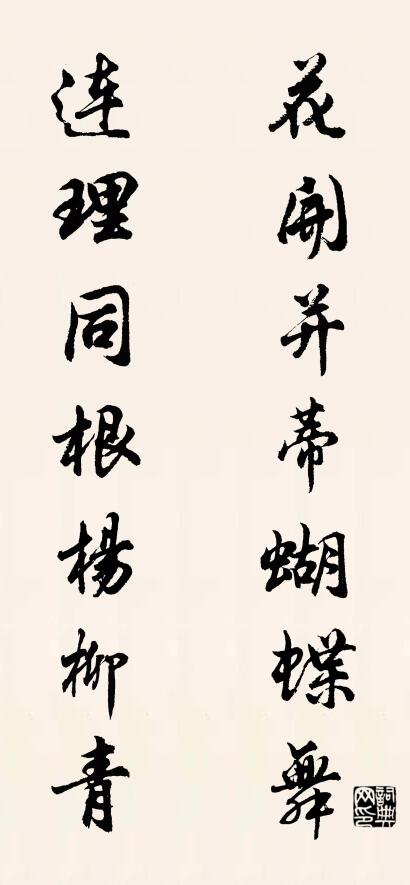 花開并蒂蝴蝶舞
連理同根楊柳青
詞典網印